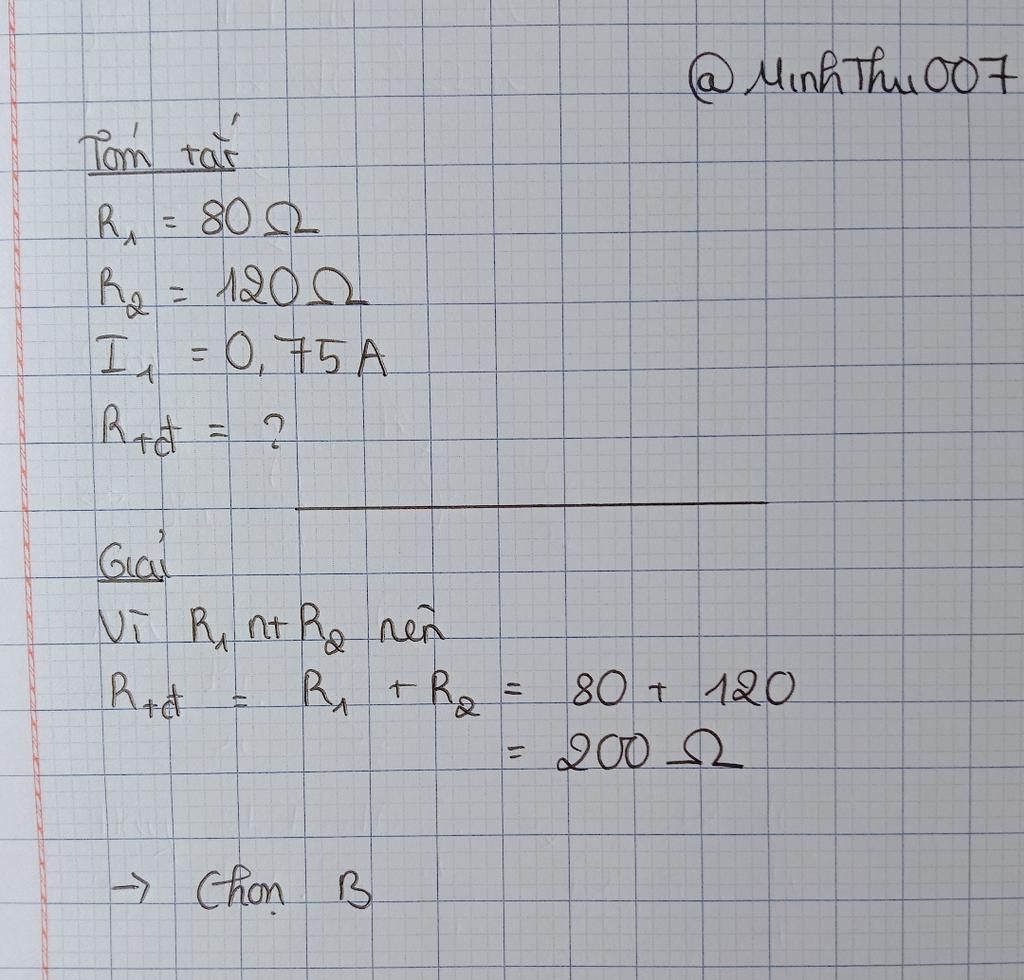 @MinhThu007
Tóm tắt
R₁ = 80 Ω
R₂ = 120 Ω
I₁ = 0,75 A
Rtđ = ?
Giải
Vì R₁ nt R₂ nên
Rtđ = R₁ + R₂ = 80 + 120
= 200 Ω
→ Chọn B